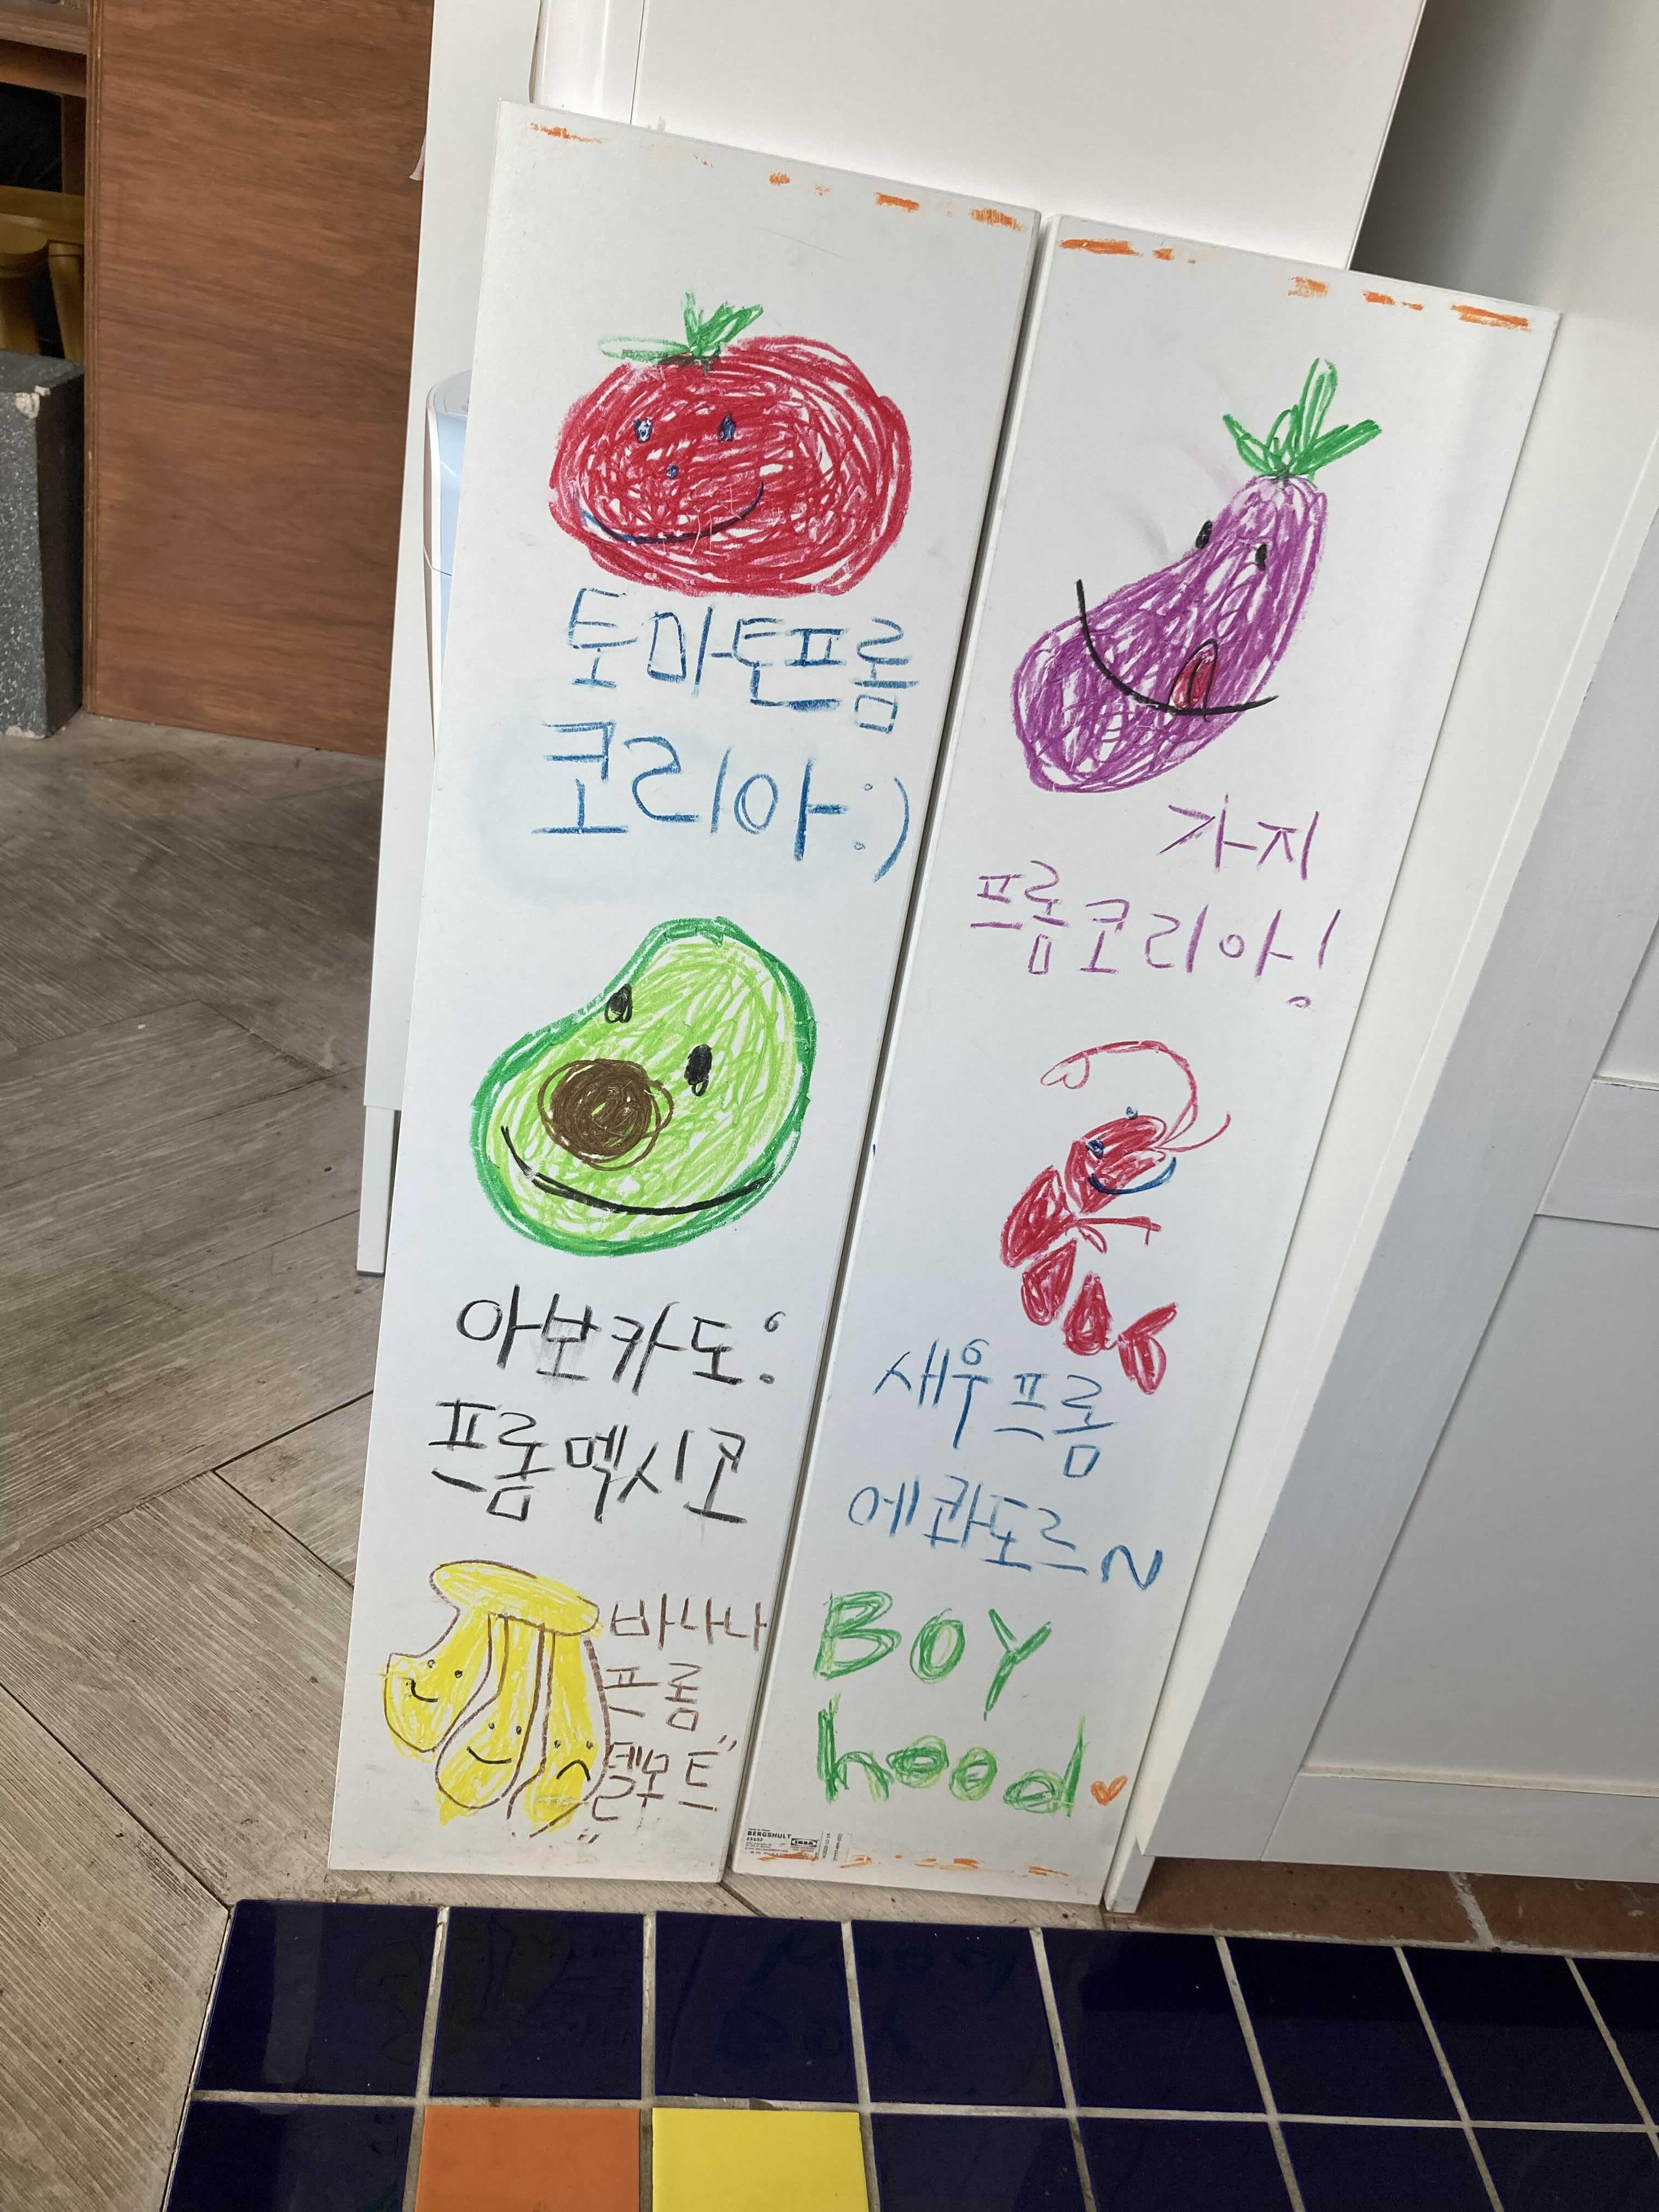 토마토프롬
코리아:)
아보카도:
프롬멕시코
바나나
프롬
"델몬트"
가지
프롬코리아!
새우프롬
에콰도르~
BOY
hood
BERGSHULT
IKEA